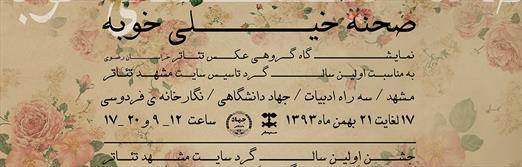 صحنه خیلی خوبه
نمایشگاه گروهی عکس تئاتر خراسان رضوی
به مناسبت اولین سالگرد تاسیس سایت مشهد تئاتر
مشهد / سه راه ادبیات / جهاد دانشگاهی / نگارخانه ی فردوسی
۱۷ لغایت ۲۱ بهمن ماه ۱۳۹۳ ساعت ۱۲_۹ و ۲۰_۱۷
جشن اولین سالگرد سایت مشهد تئاتر